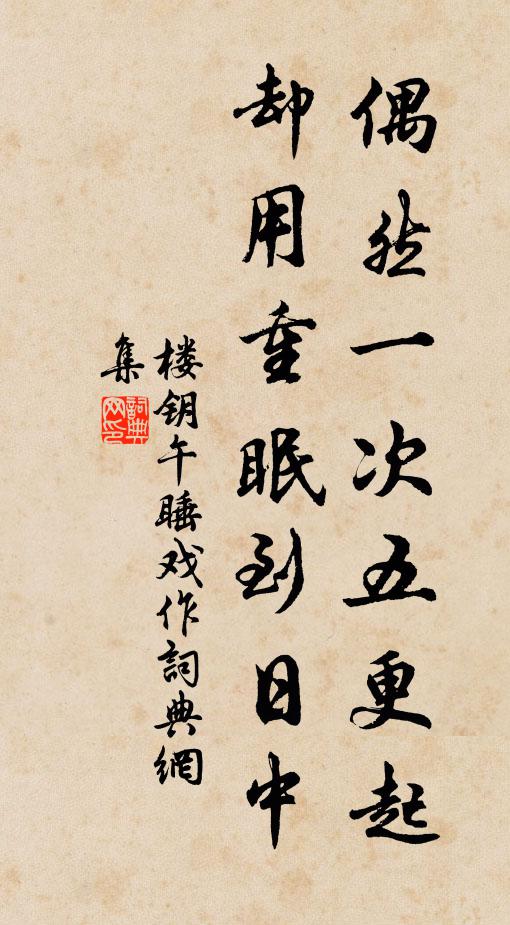 偶然一次五更起
却用重眠到日中
楼钥午睡戏作詞典網
集
詞典网印